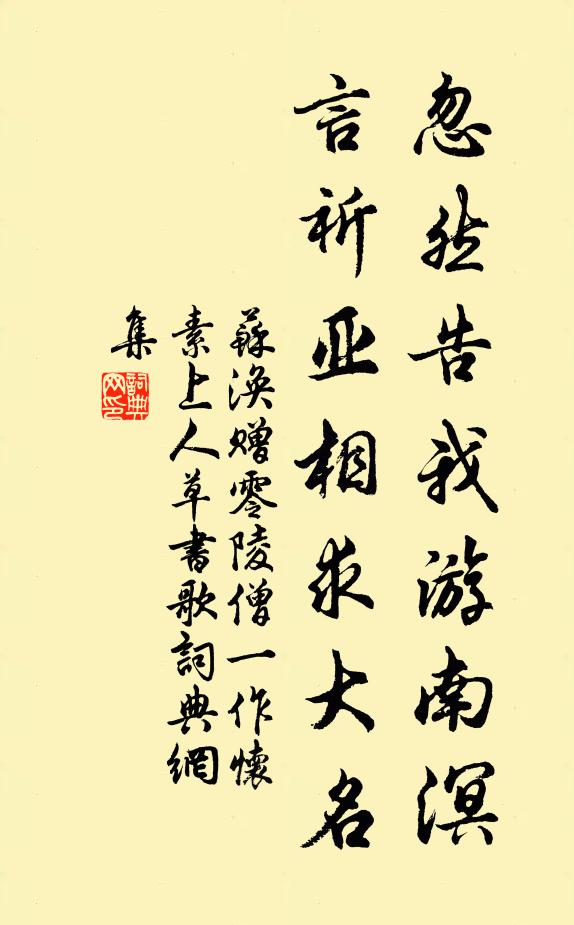 忽然告我游南溟
言祈亚相求大名
蘇渙贈零陵僧一作懷
素上人草書歌詞典網
集
詞典
网印